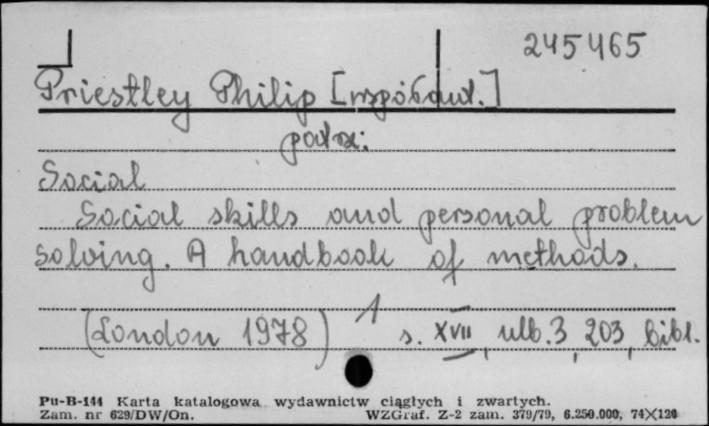 245465
Priestley Philip [współaut.]
patrz:
Social
Social skills and personal problem
solving. A handbook of methods.
(London 1978) 1 s. XVII, ulb. 3, 203, bibl.
Pu-B-144 Karta katalogowa wydawnictw ciągłych i zwartych.
Zam. nr 629/DW/On. WZGraf. Z-2 zam. 379/79, 6.250.000, 74×120